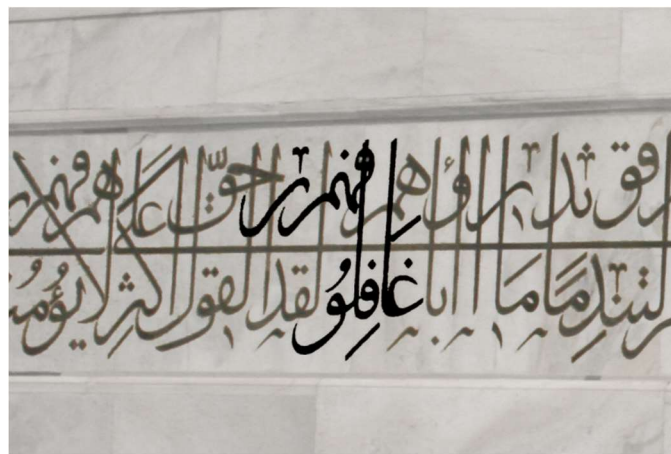 لتنذر قوما ما انذر اباؤهم فهم غافلون لقد حق القول على اكثرهم فهم لا